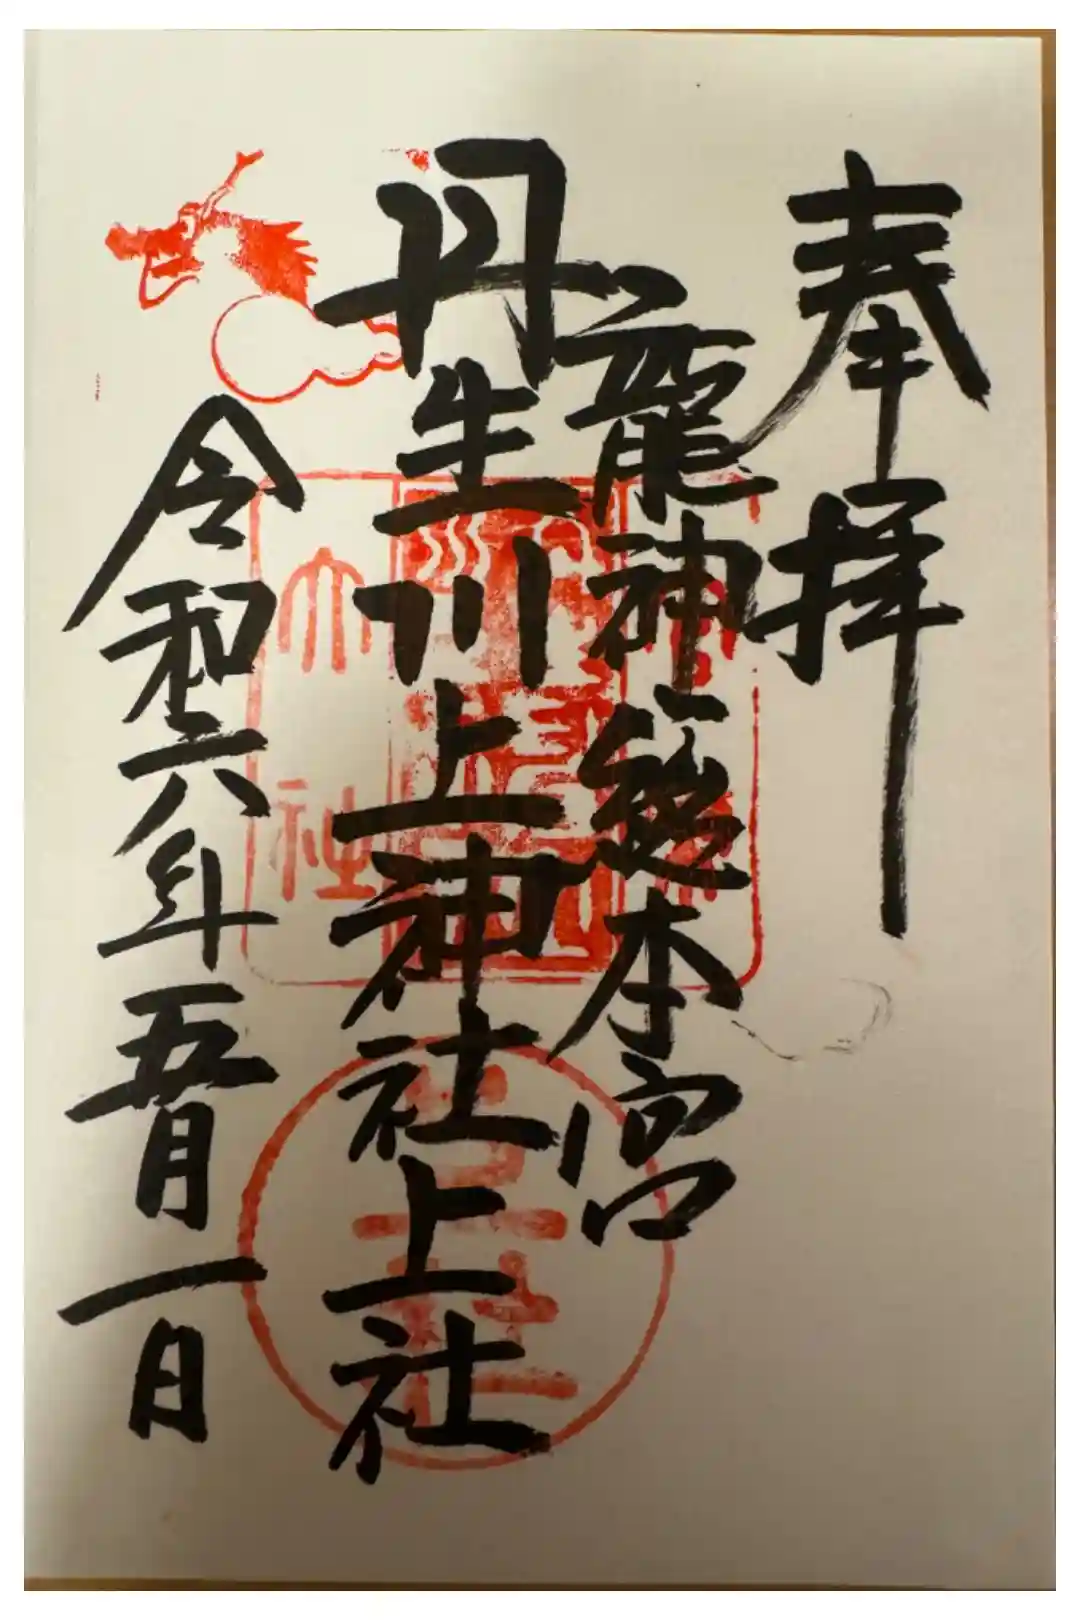 奉拝
龍神総本宮
丹生川上神社上社
令和六年五月一日
大社